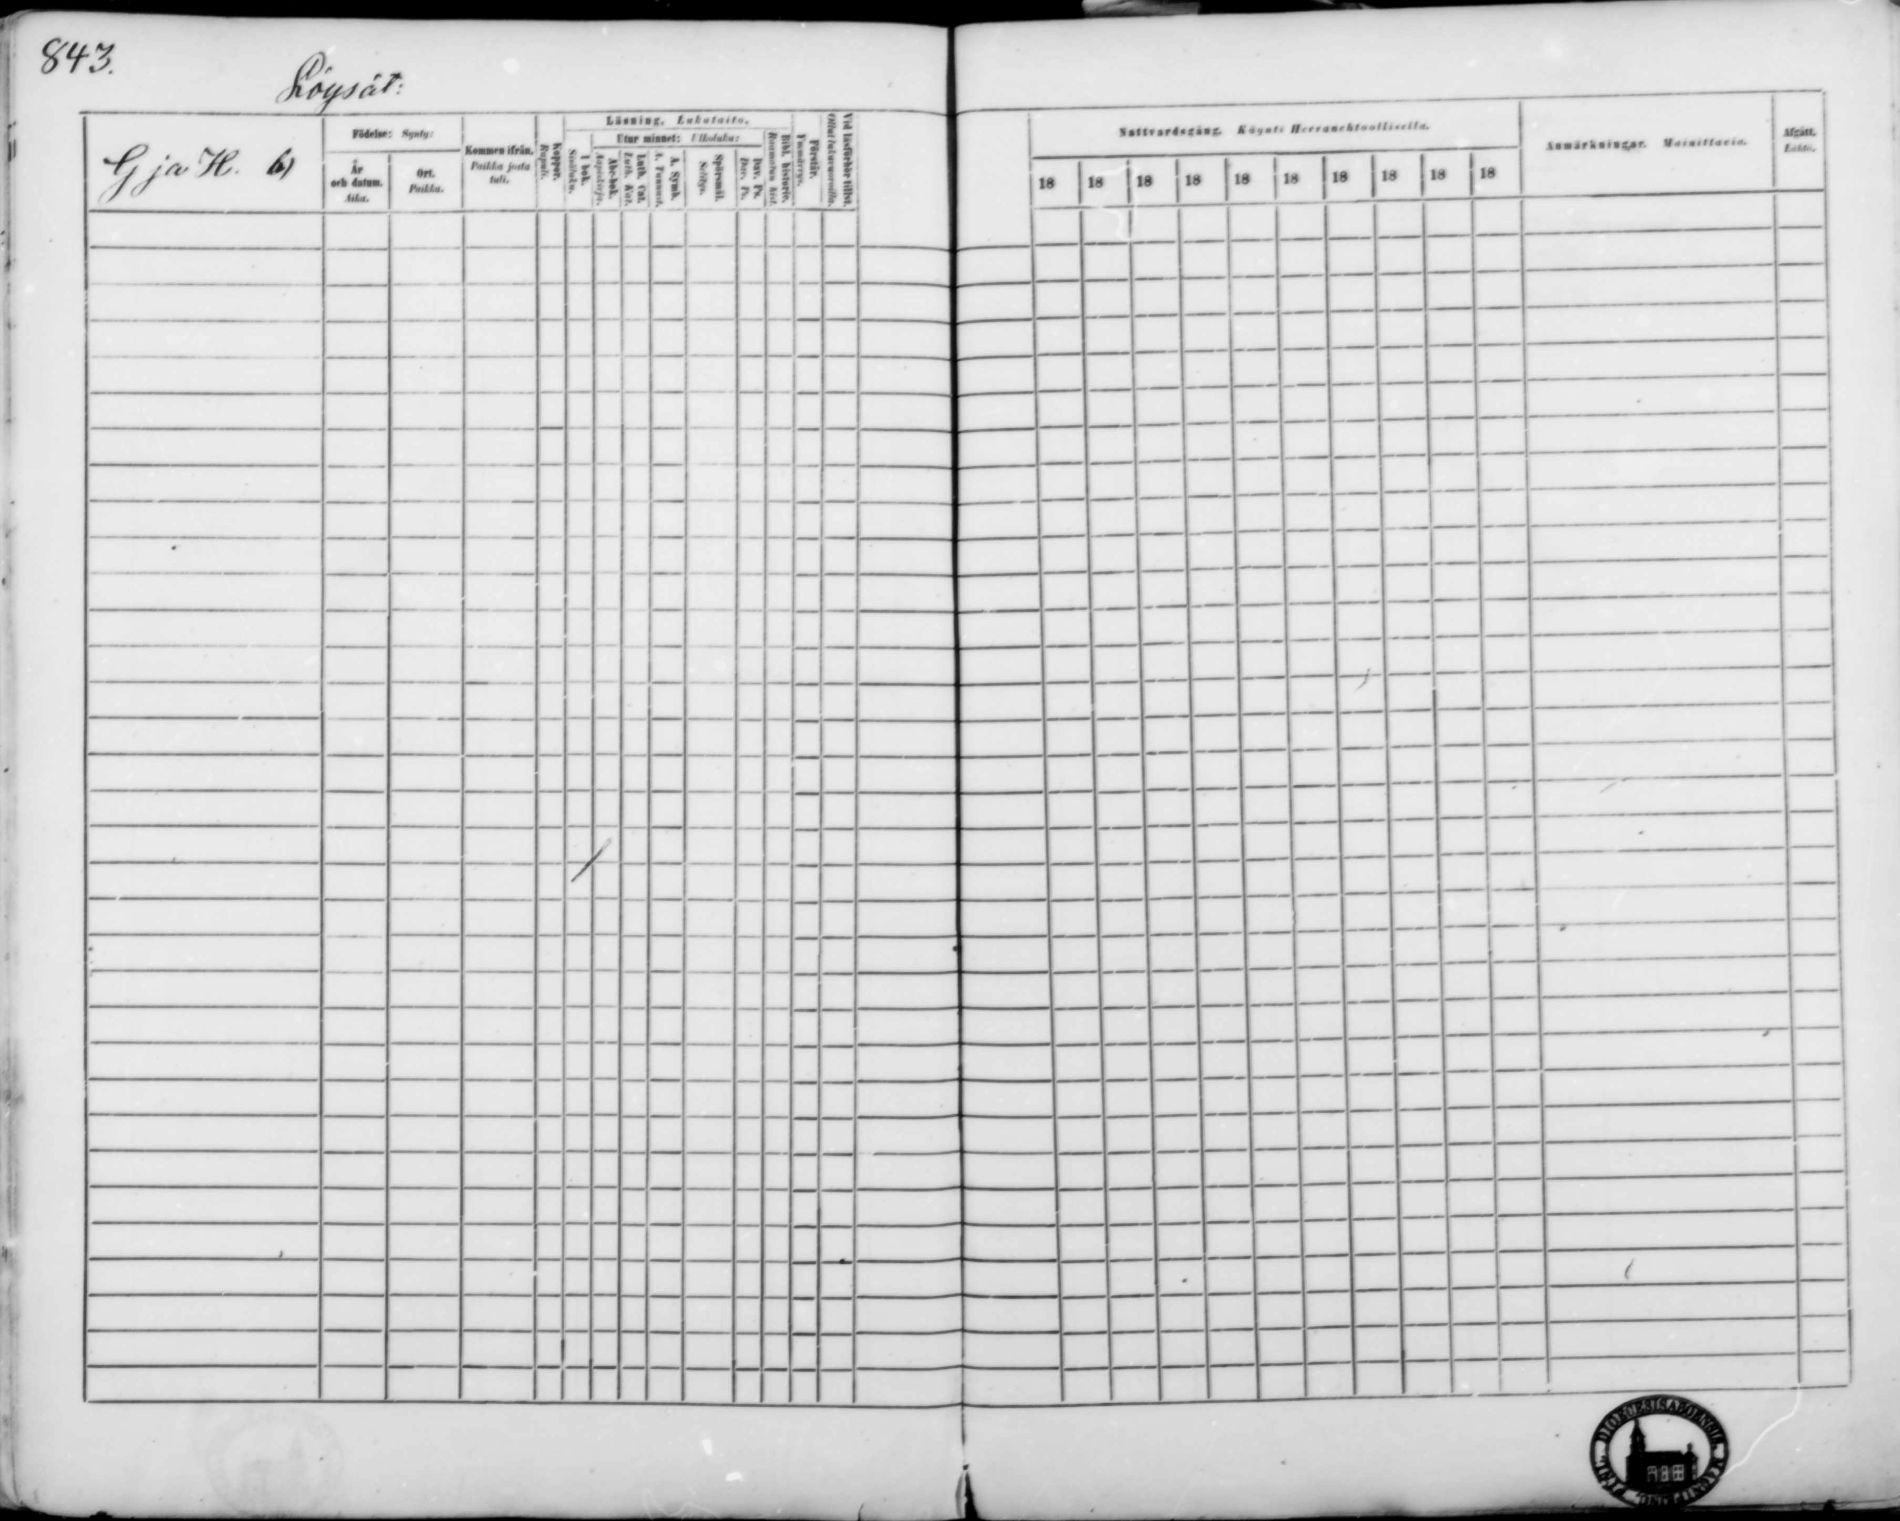 843.
Löysät:
G ja H. b)
Födelse: Synty:
År och datum. Aika.
Ort. Paikka.
Kommen ifrån. Paikka josta tuli.
Koppor. Rupuli.
Läsning. Lukutaito.
I bok. Sisäluku.
Utur minnet: Ulkoluku:
Abc-bok. Aapiskirja.
Luth. Cat. Luth. Kat.
A. Symb. A. Tunnust.
Spörsmål. Selitys.
Dav. Ps. Dav. Ps.
Bibl. historie. Raamatun hist.
Förstår. Ymmärrys.
Vid läsförhör tillst. Ollut lukuvuoroilla.
Nattvardsgång. Käynti Herranehtoollisella.
18 18 18 18 18 18 18 18 18 18
Anmärkningar. Mainittavia.
Afgått. Lähtö.
DIOECESIS ABOENSIS